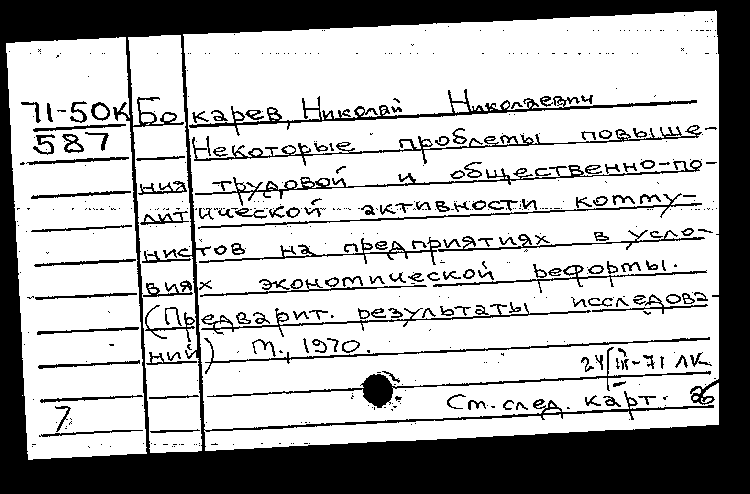 71-50К Бокарев, Николай Николаевич
587 Некоторые проблемы повыше-
ния трудовой и общественно-по-
литической активности комму-
нистов на предприятиях в усло-
виях экономической реформы.
(Предварит. результаты исследова-
ний) М., 1970.
24/III-71 ЛК
7 См. след. карт.